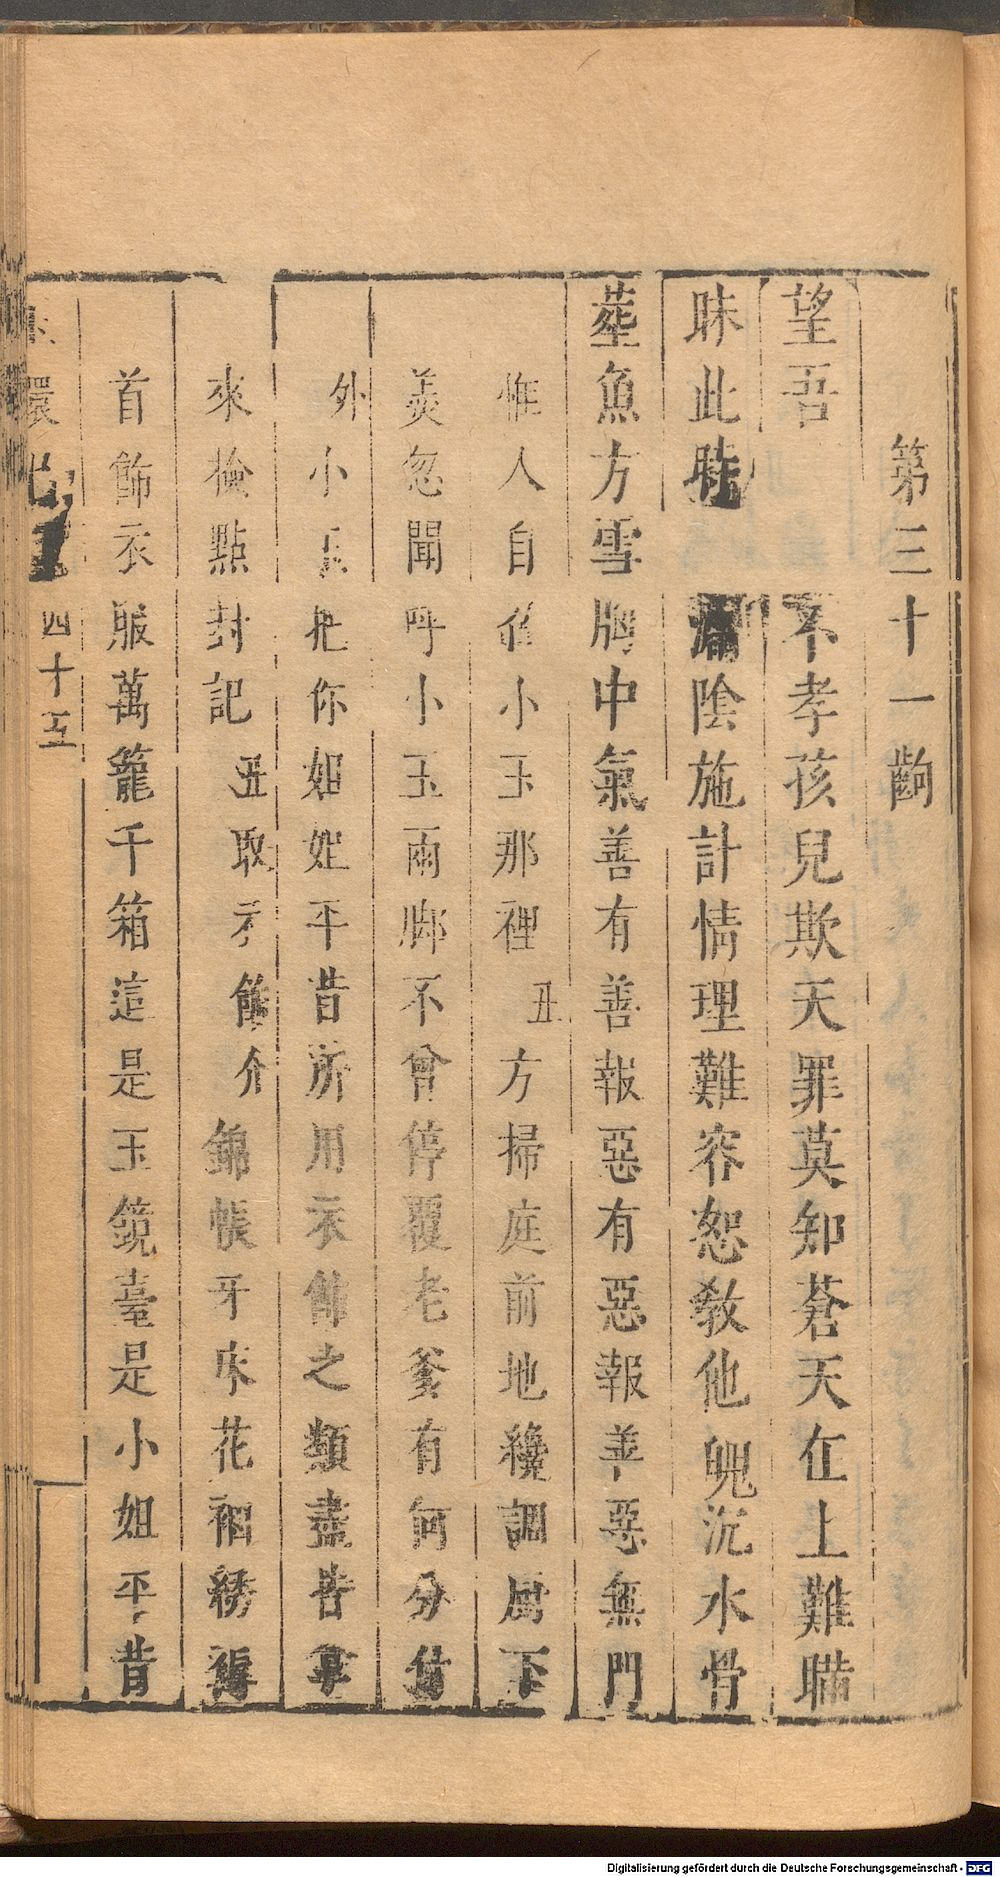 第三十一齣
望吾 不孝孩兒欺天罪莫知蒼天在上難瞞
昧此時 陰施計情理難容恕教他䰟沉水骨
塟魚方雪胸中氣善有善報惡有惡報善惡無門
惟人自召小玉那裡丑方掃庭前地纔調厨下
羙忽聞呼小玉兩脚不曾停覆老爹有何分付
外小玉把你姐姐平昔所用衣飾之類盡皆拿
來檢點封記丑取衣飾介錦帳牙床花裀綉褥
首飾衣服萬籠千箱這是玉鏡臺是小姐平昔
環 四十五
Digitalisierung gefördert durch die Deutsche Forschungsgemeinschaft - DFG